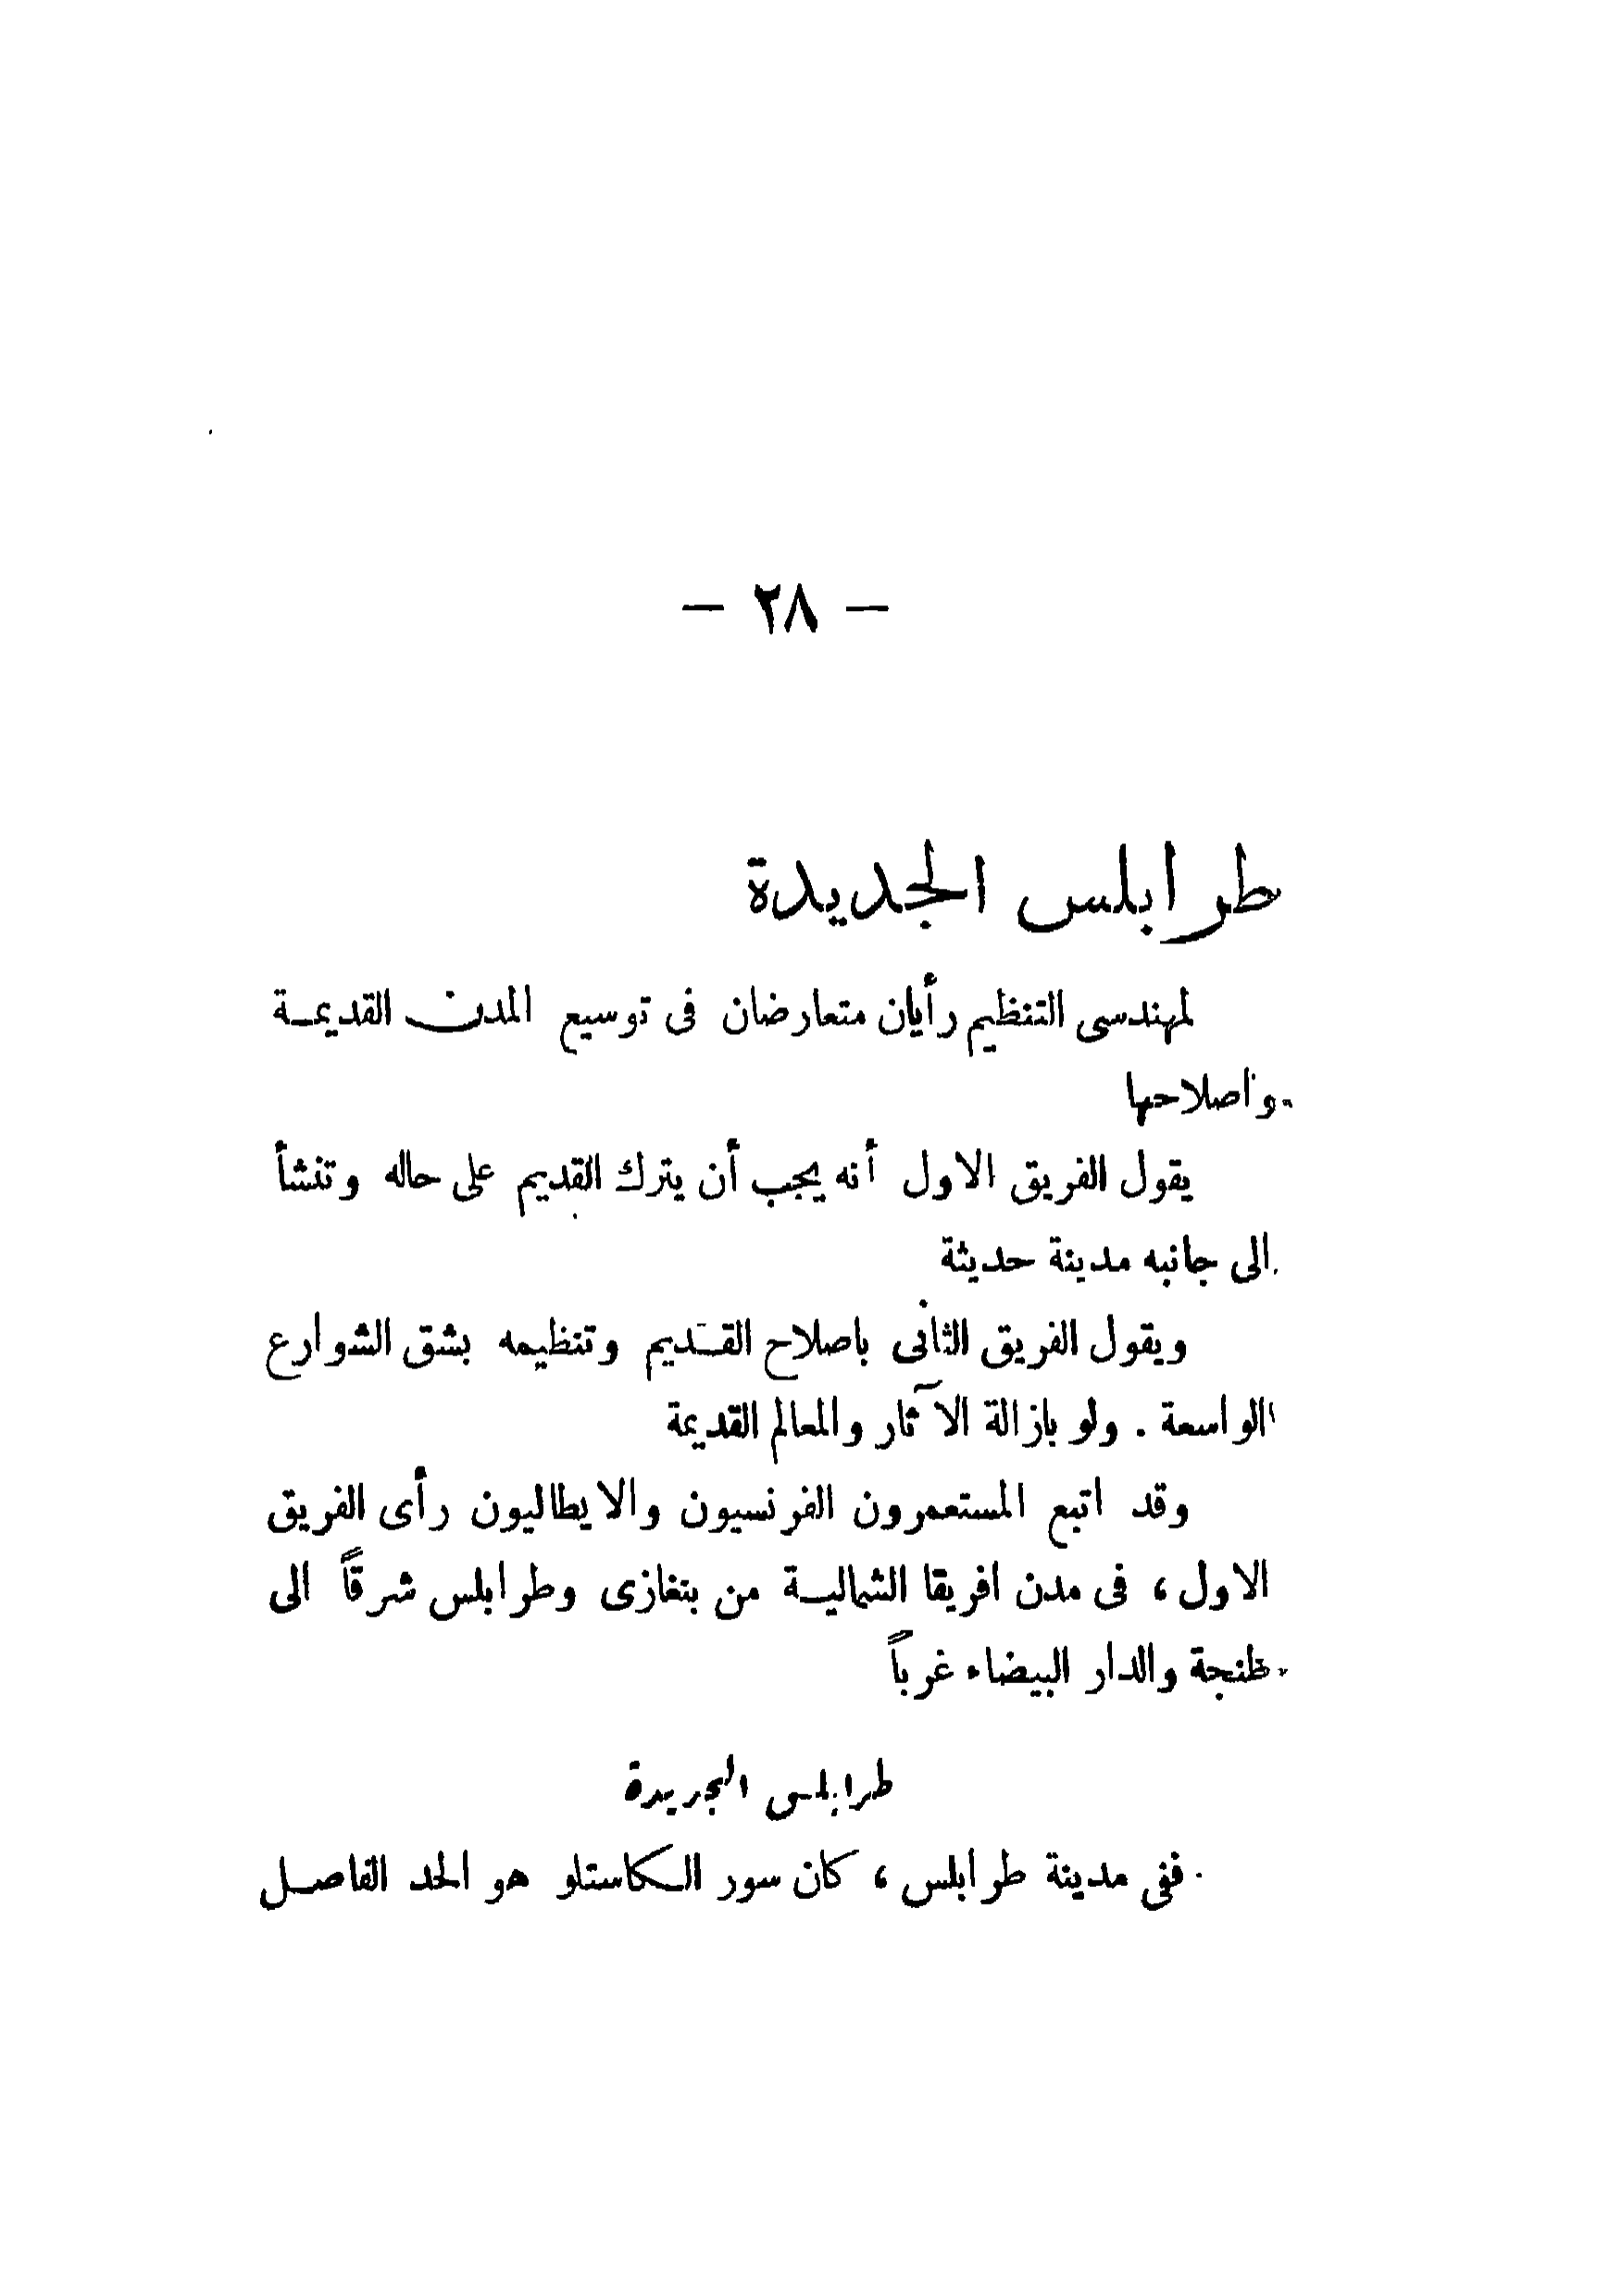 — ٢٨ —
طرابلس الجديدة
لمهندسى التنظيم رأيان متعارضان فى توسيع المدن القديمة
واصلاحها
يقول الفريق الاول أنه يجب أن يترك القديم على حاله وتنشأ
الى جانبه مدينة حديثة
ويقول الفريق الثانى باصلاح القديم وتنظيمه بشق الشوارع
الواسعة . ولو بازالة الآثار والمعالم القديمة
وقد اتبع المستعمرون الفرنسيون والايطاليون رأى الفريق
الاول ، فى مدن افريقا الشمالية من بنغازى وطرابلس شرقاً الى
طنجة والدار البيضاء غرباً
طرابلس الجديدة
ففى مدينة طرابلس ، كان سور الكاستلو هو الحد الفاصل